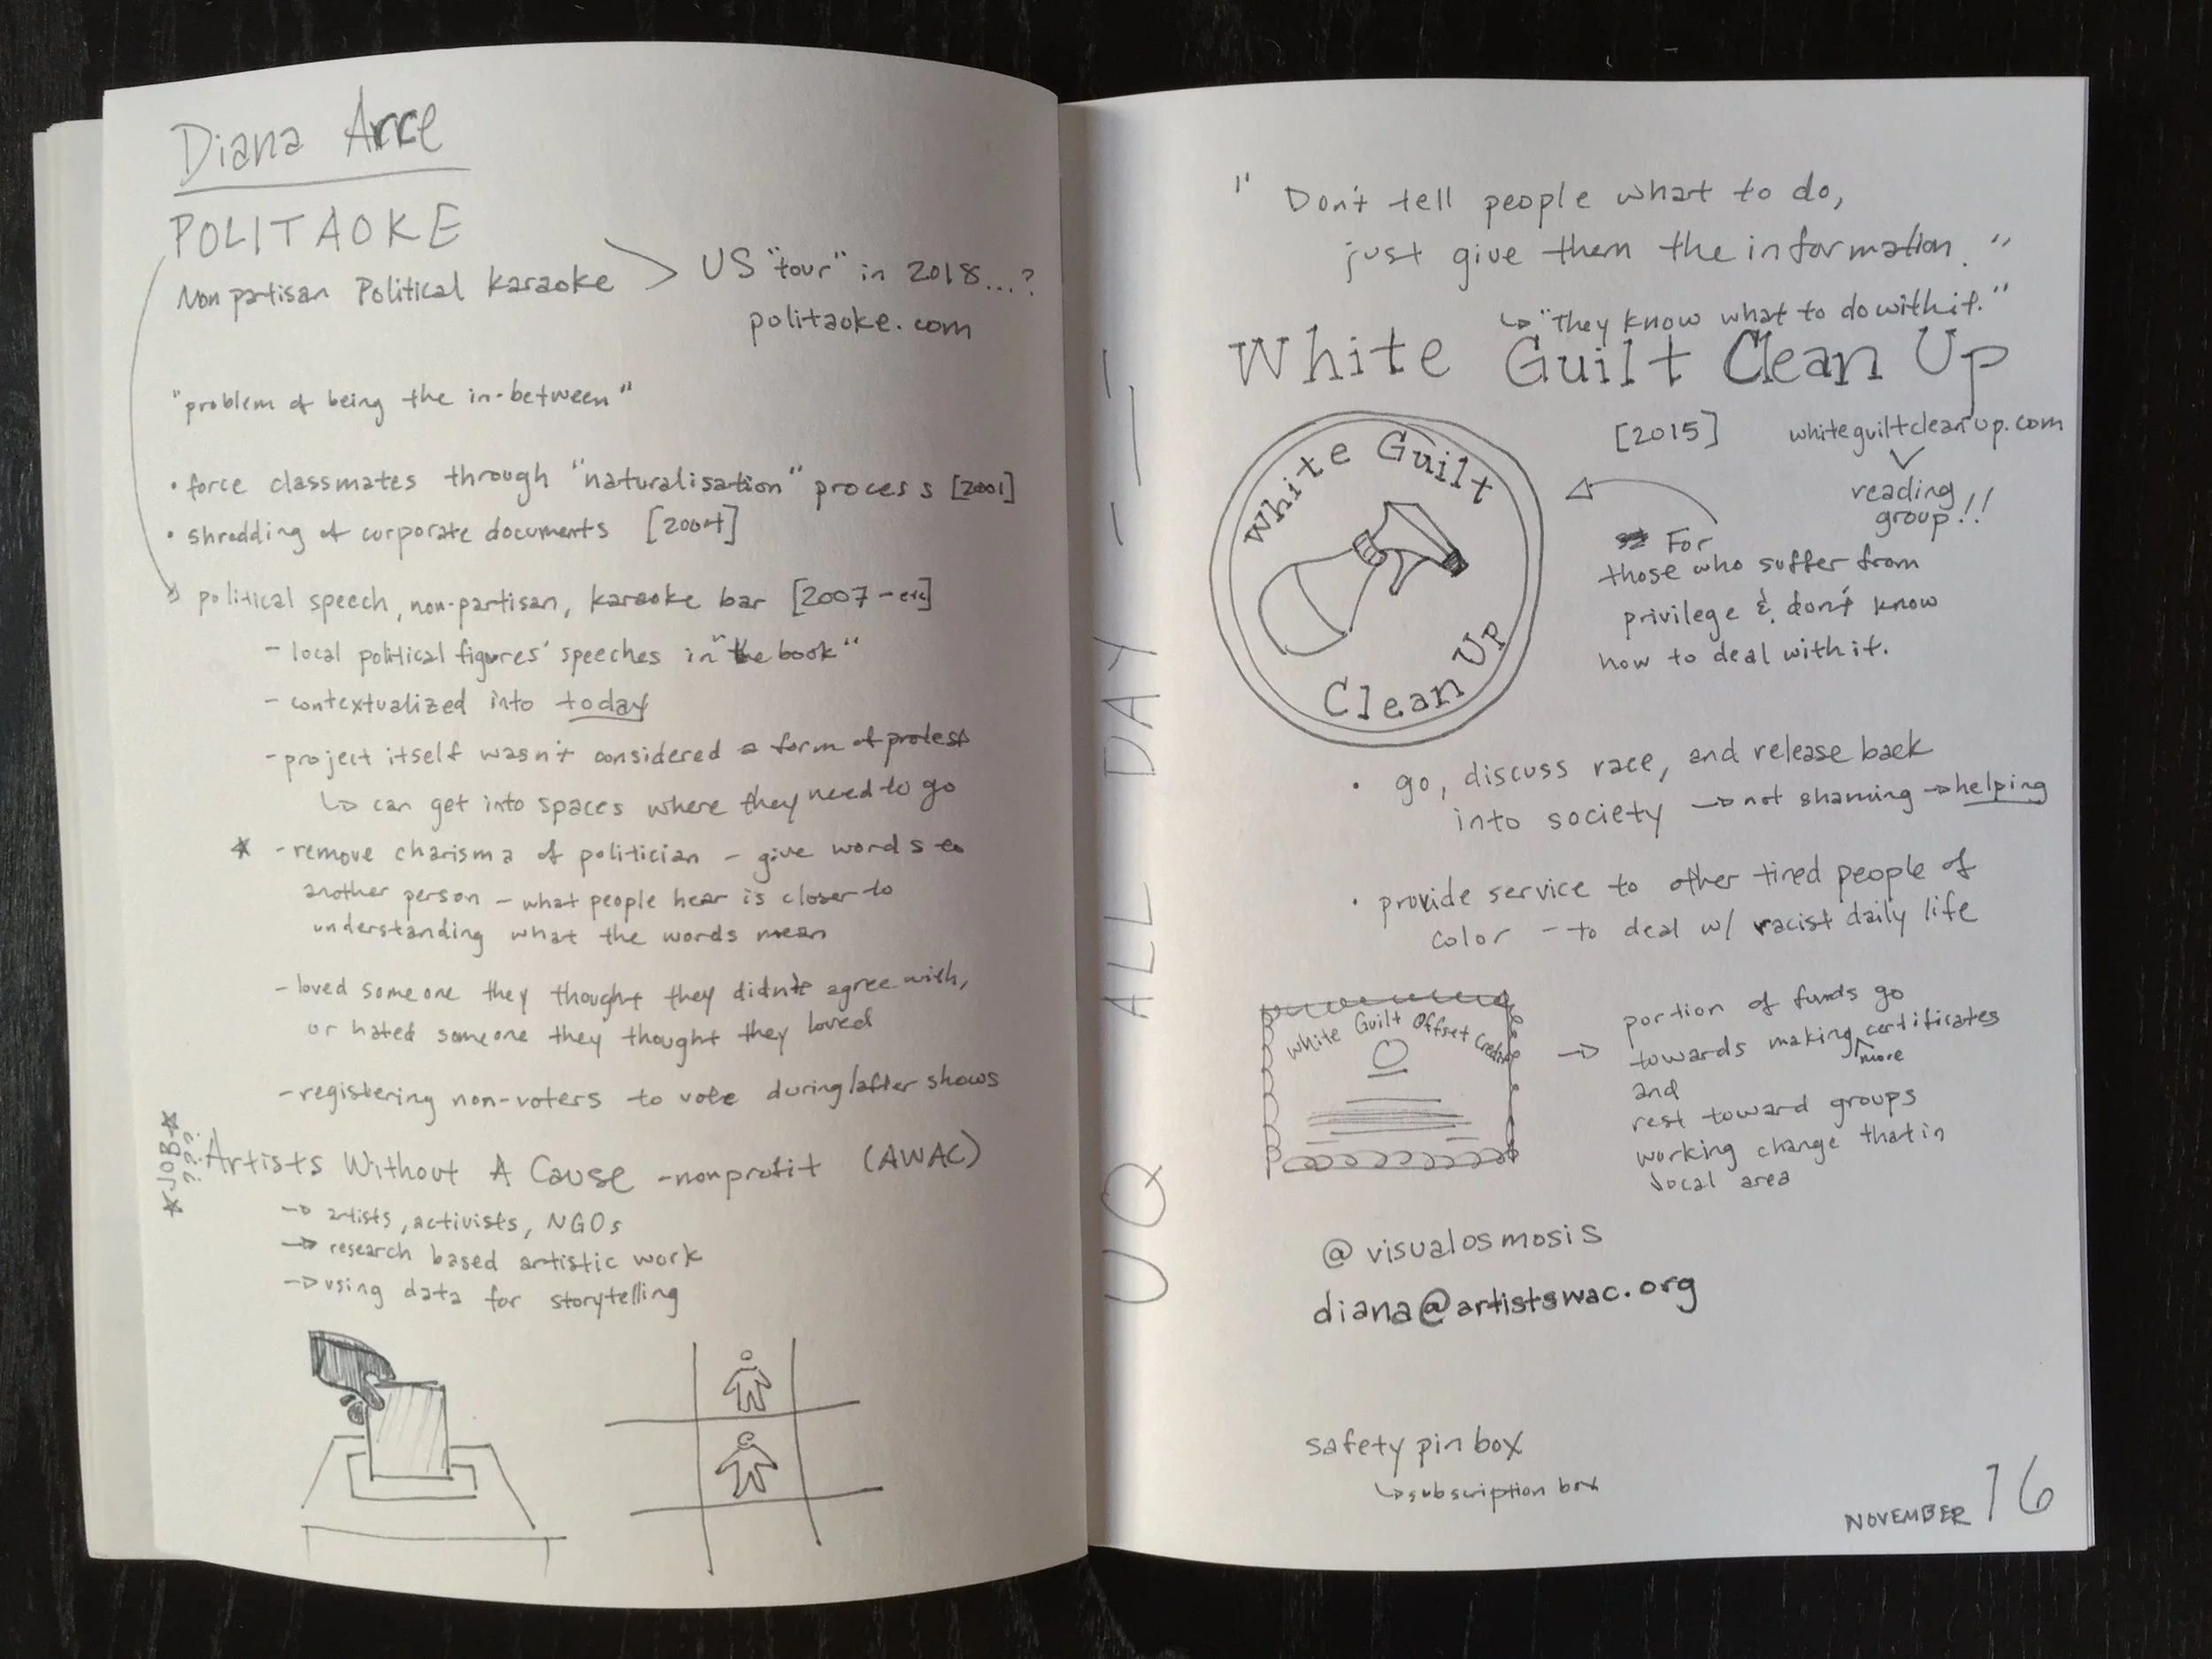 Diana Arce
POLITAOKE
Nonpartisan Political Karaoke
US "tour" in 2018...?
politaoke.com
"problem of being the in-between"
• force classmates through "naturalisation" process [2001]
• shredding of corporate documents [2004]
political speech, non-partisan, karaoke bar [2007-etc]
- local political figures' speeches in "the book"
- contextualized into today
- project itself wasn't considered a form of protest
↳ can get into spaces where they need to go
* - remove charisma of politician - give words to
another person - what people hear is closer to
understanding what the words mean
- loved someone they thought they didn't agree with,
or hated someone they thought they loved
- registering non-voters to vote during/after shows
☆JOB☆
????
Artists Without A Cause - nonprofit (AWAC)
→ artists, activists, NGOs
→ research based artistic work
→ using data for storytelling
UQ ALL DAY
" Don't tell people what to do,
just give them the information."
↳ "They know what to do with it."
White Guilt Clean Up
[2015] whiteguiltcleanup.com
reading
group!!
White Guilt
Clean Up
For
those who suffer from
privilege & don't know
how to deal with it.
• go, discuss race, and release back
into society → not shaming → helping
• provide service to other tired people of
color - to deal w/ racist daily life
White Guilt Offset Credits
→ portion of funds go
towards making more certificates
and
rest toward groups
working change that in
local area
@visualosmosis
diana@artistswac.org
safety pin box
↳ subscription box
NOVEMBER 16